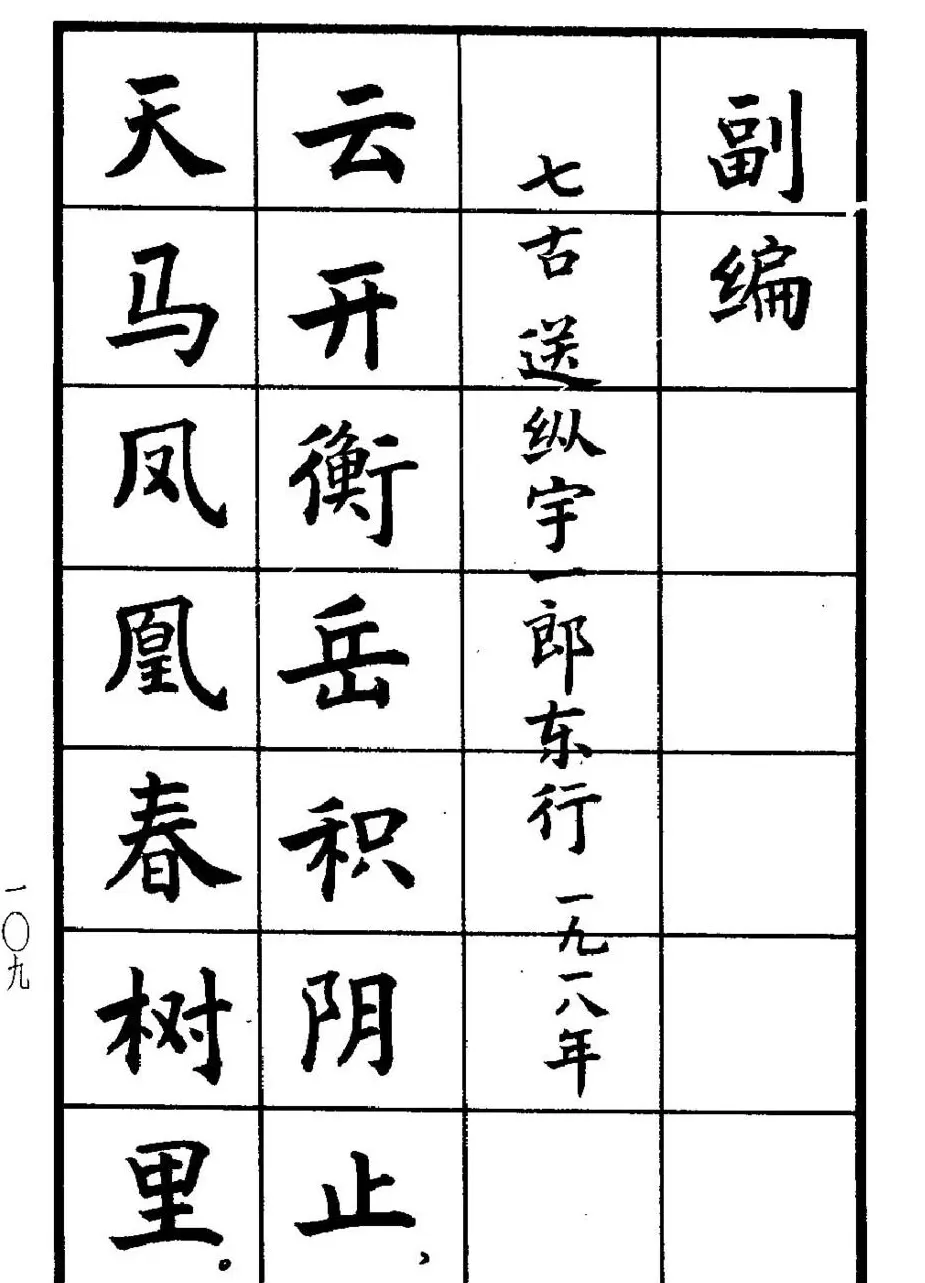 副编
七古 送纵宇一郎东行 一九一八年
云开衡岳积阴止，
天马凤凰春树里。
一〇九